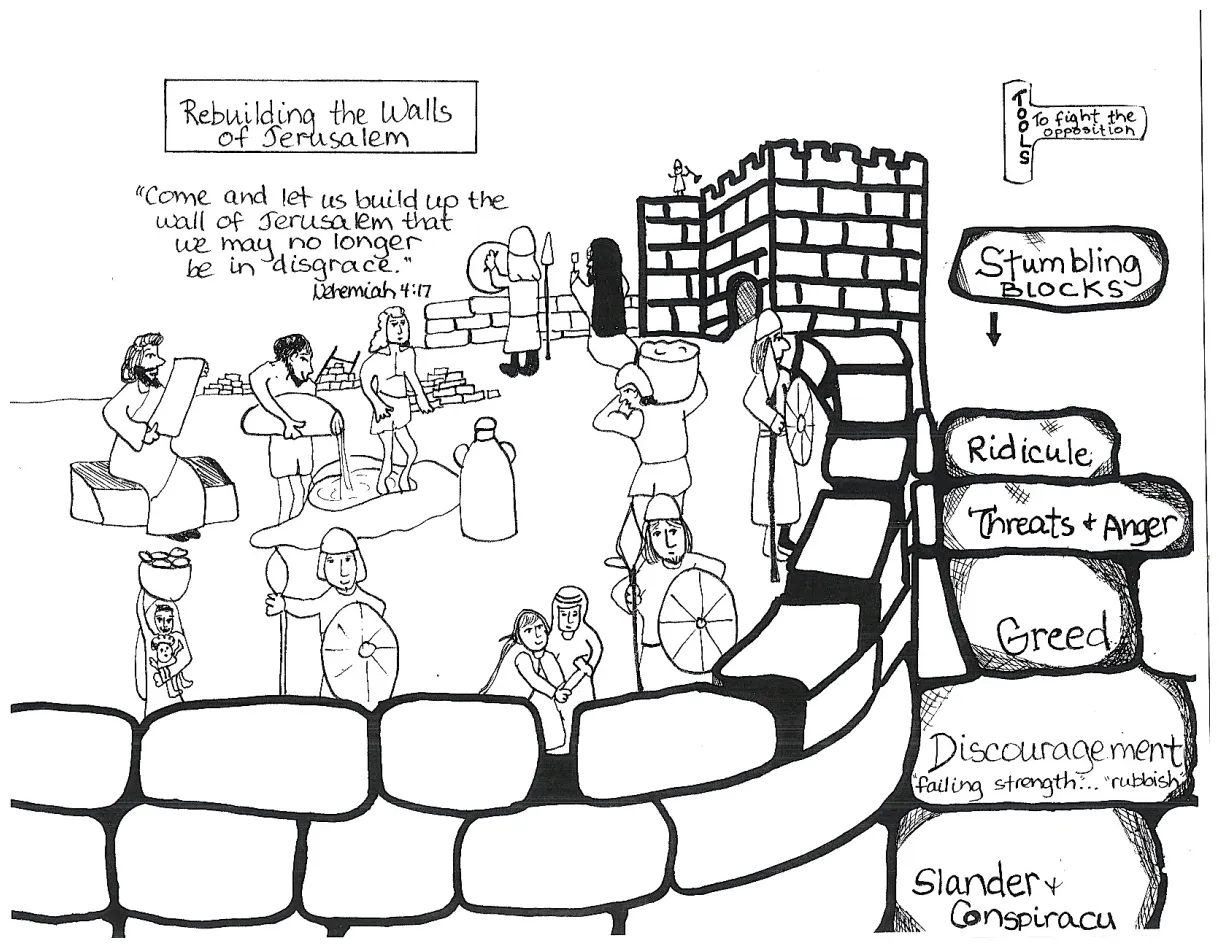 Rebuilding the Walls
of Jerusalem
"Come and let us build up the
wall of Jerusalem that
we may no longer
be in disgrace."
Nehemiah 4:17
TOOLS
To fight the
opposition
Stumbling
BLOCKS
Ridicule
Threats & Anger
Greed
Discouragement
"failing strength"... "rubbish"
Slander &
Conspiracy